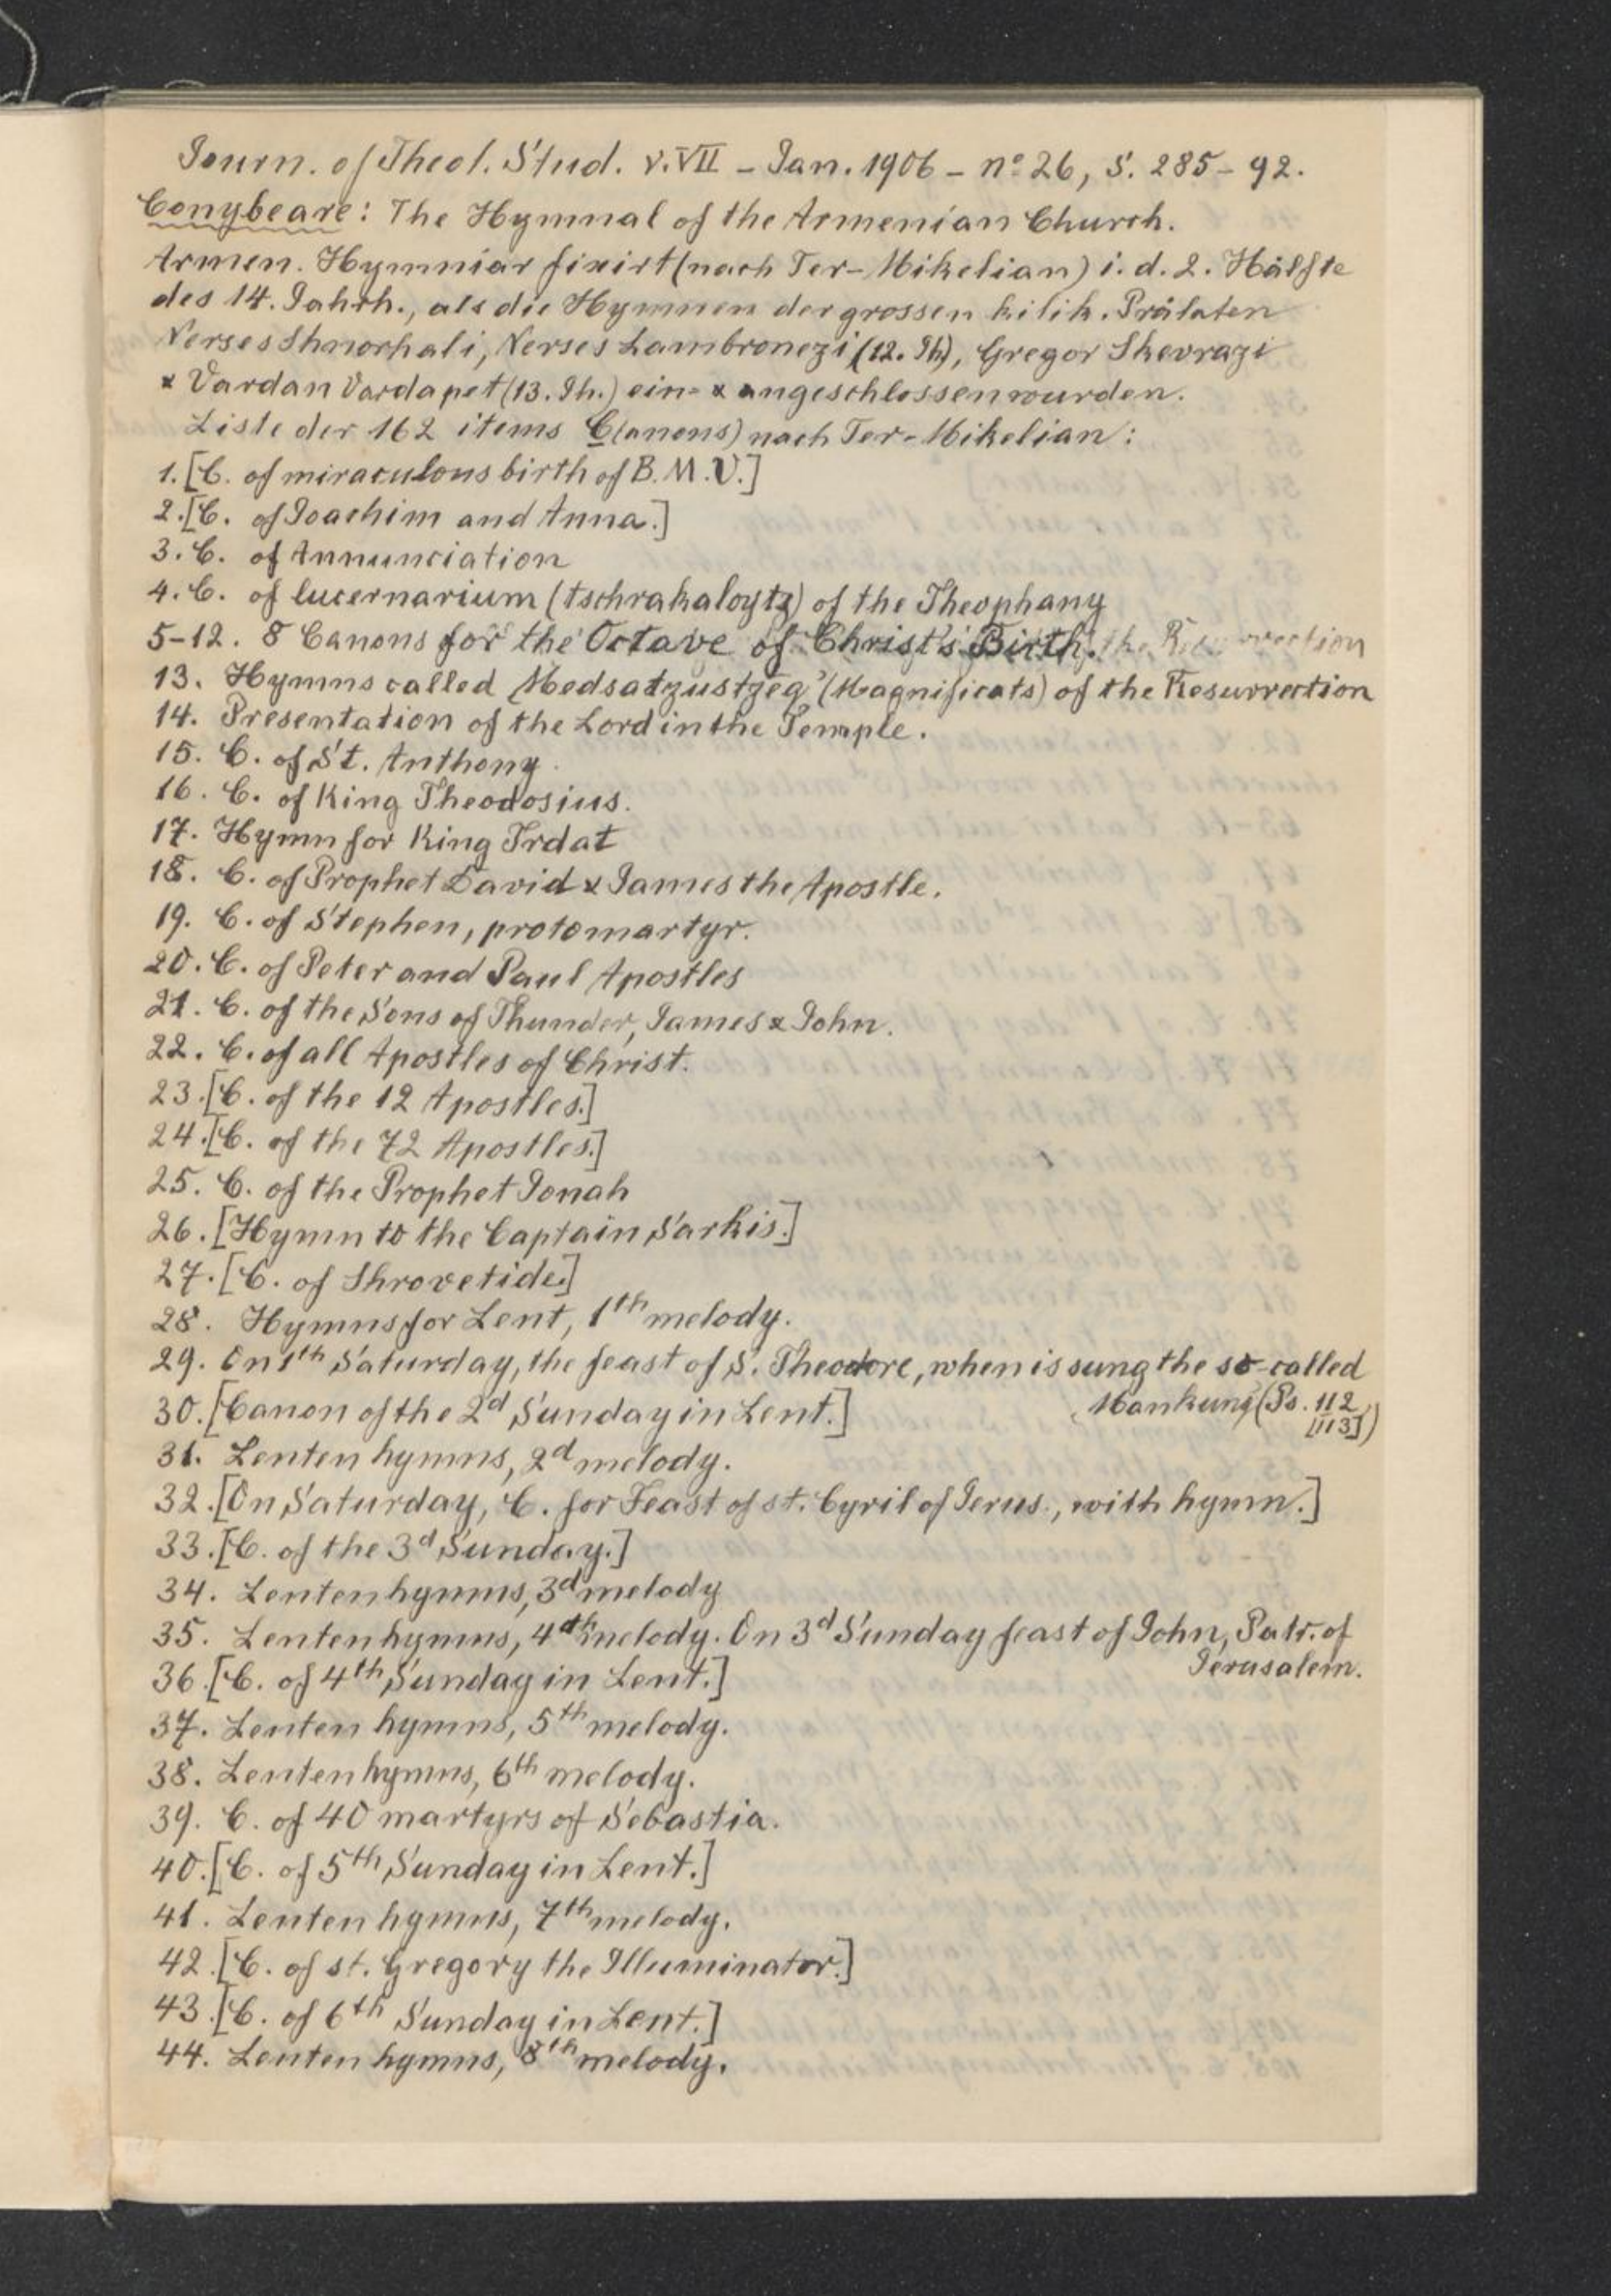 Journ. of Theol. Stud. v. VII - Jan. 1906 - nº 26, S. 285-92.
Conybeare: The Hymnal of the Armenian Church.
Armen. Hymniar fixirt (nach Ter-Mikelian) i. d. 2. Hälfte
des 14. Jahrh., als die Hymnen der grossen kilik. Prälaten
Nerses Shnorhali, Nerses Lambronezi (12. Jh), Gregor Skevrazi
& Vardan Vardapet (13. Jh.) ein- & angeschlossen wurden.
Liste der 162 items C(anons) nach Ter-Mikelian:
1. [C. of miraculous birth of B.M.V.]
2. [C. of Joachim and Anna.]
3. C. of Annunciation
4. C. of lucernarium (tschrakaloytz) of the Theophany
5-12. 8 Canons for the Octave of Christ's Birth. the Resurrection
13. Hymns called Medsatzustzeq' (Magnificats) of the Resurrection
14. Presentation of the Lord in the Temple.
15. C. of St. Anthony.
16. C. of King Theodosius.
17. Hymn for King Trdat
18. C. of Prophet David & James the Apostle.
19. C. of Stephen, protomartyr.
20. C. of Peter and Paul Apostles
21. C. of the Sons of Thunder, James & John.
22. C. of all Apostles of Christ.
23. [C. of the 12 Apostles.]
24. [C. of the 72 Apostles.]
25. C. of the Prophet Jonah
26. [Hymn to the Captain Sarkis.]
27. [C. of Shrovetide.]
28. Hymns for Lent, 1th melody.
29. On 1th Saturday, the feast of S. Theodore, when is sung the so-called
Mankung (Ps. 112 [113])
30. [Canon of the 2d Sunday in Lent.]
31. Lenten hymns, 2d melody.
32. [On Saturday, C. for Feast of st. Cyril of Jerus., with hymn.]
33. [C. of the 3d Sunday.]
34. Lenten hymns, 3d melody
35. Lenten hymns, 4th melody. On 3d Sunday feast of John, Patr. of
Jerusalem.
36. [C. of 4th Sunday in Lent.]
37. Lenten hymns, 5th melody.
38. Lenten hymns, 6th melody.
39. C. of 40 martyrs of Sebastia.
40. [C. of 5th Sunday in Lent.]
41. Lenten hymns, 7th melody.
42. [C. of st. Gregory the Illuminator.]
43. [C. of 6th Sunday in Lent.]
44. Lenten hymns, 8th melody.